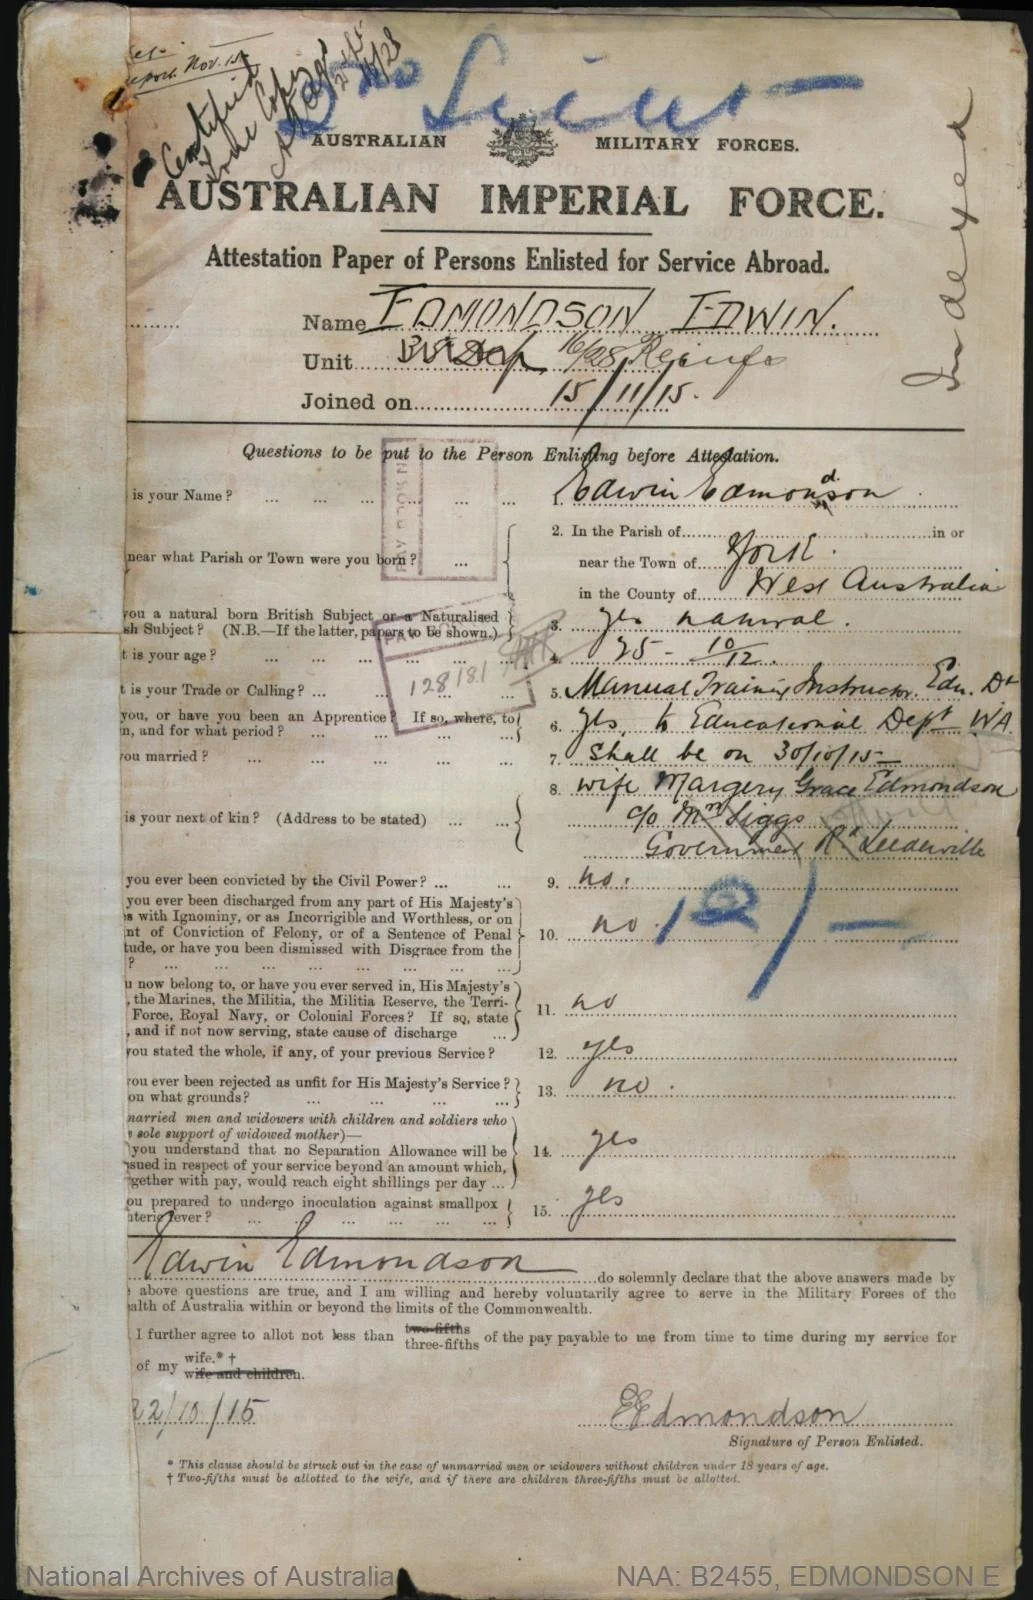 Nov. 15
Certified
True Copy
2nd Lieut
AUSTRALIAN MILITARY FORCES.
AUSTRALIAN IMPERIAL FORCE.
Indexed
Attestation Paper of Persons Enlisted for Service Abroad.
Name EDMONDSON EDWIN.
Unit 16/28 Reinfs
Joined on 15/11/15.
Questions to be put to the Person Enlisting before Attestation.
is your Name? ... 1. Edwin Edmondson
2. In the Parish of in or
near what Parish or Town were you born? ... near the Town of York.
in the County of West Australia
you a natural born British Subject or a Naturalised
sh Subject? (N.B.—If the latter, papers to be shown.) 3. yes natural.
t is your age? ... 4. 25 - 10/12.
128181
t is your Trade or Calling? ... 5. Manual Training Instructor. Edn. Dt
you, or have you been an Apprentice? If so, where, to
n, and for what period? ... 6. yes, to Educational Dept WA
you married? ... 7. Shall be on 30/10/15
8. wife Margery Grace Edmondson
is your next of kin? (Address to be stated) ... c/o Mrs Liggs
Government Rd Leederville
you ever been convicted by the Civil Power? ... 9. no.
you ever been discharged from any part of His Majesty's
s with Ignominy, or as Incorrigible and Worthless, or on
nt of Conviction of Felony, or of a Sentence of Penal
tude, or have you been dismissed with Disgrace from the
? ... 10. no.
u now belong to, or have you ever served in, His Majesty's
, the Marines, the Militia, the Militia Reserve, the Terri-
Force, Royal Navy, or Colonial Forces? If so, state
, and if not now serving, state cause of discharge ... 11. no
you stated the whole, if any, of your previous Service? 12. yes
you ever been rejected as unfit for His Majesty's Service?
on what grounds? ... 13. no.
married men and widowers with children and soldiers who
e sole support of widowed mother)—
you understand that no Separation Allowance will be
ssued in respect of your service beyond an amount which,
gether with pay, would reach eight shillings per day ... 14. yes
ou prepared to undergo inoculation against smallpox
nteric fever? ... 15. yes
Edwin Edmondson do solemnly declare that the above answers made by
above questions are true, and I am willing and hereby voluntarily agree to serve in the Military Forces of the
alth of Australia within or beyond the limits of the Commonwealth.
I further agree to allot not less than two-fifths three-fifths of the pay payable to me from time to time during my service for
of my wife.* † wife and children.
22/10/15
EEdmondson
Signature of Person Enlisted.
* This clause should be struck out in the case of unmarried men or widowers without children under 18 years of age.
† Two-fifths must be allotted to the wife, and if there are children three-fifths must be allotted.
National Archives of Australia NAA: B2455, EDMONDSON E